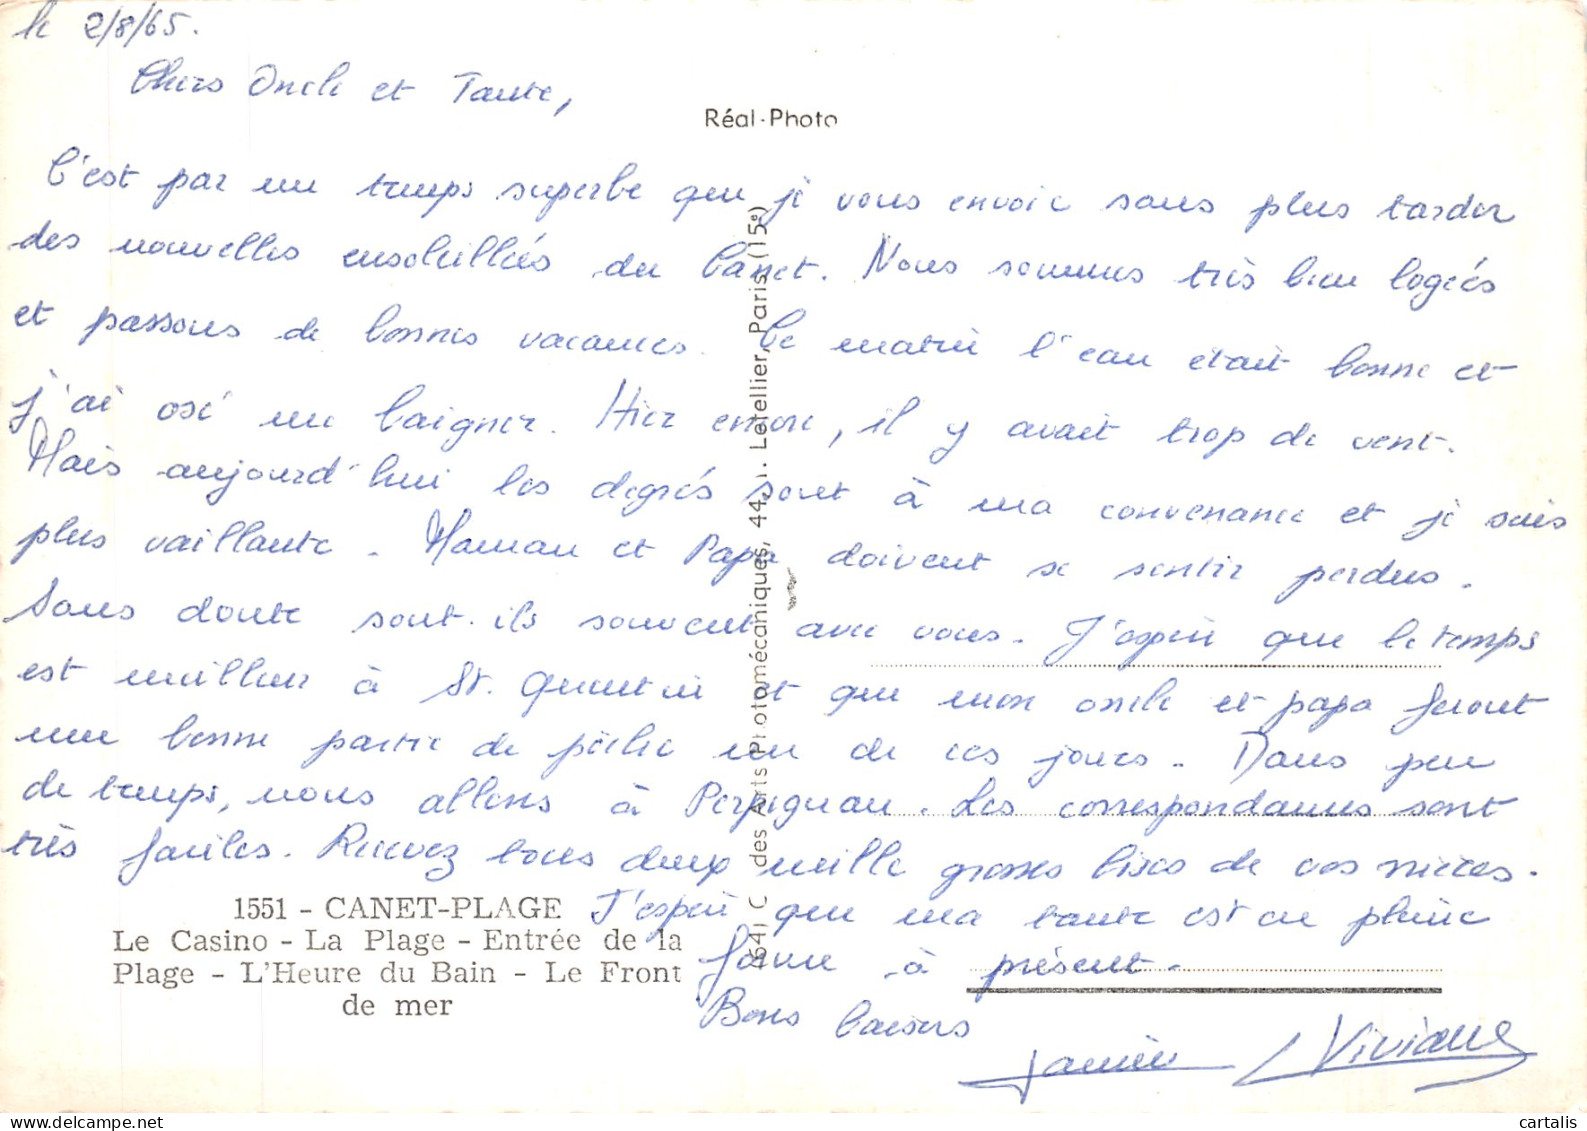 le 2/8/65.
Chers Oncle et Tante,
Réal-Photo
C'est par un temps superbe que je vous envoie sans plus tarder
des nouvelles ensoleillées du Canet. Nous sommes très bien logées
et passons de bonnes vacances. Ce matin l'eau était bonne et
j'ai osé me baigner. Hier encore, il y avait trop de vent.
Mais aujourd'hui les degrés sont à ma convenance et je suis
plus vaillante. Maman et Papa doivent se sentir perdus.
Sans doute sont-ils souvent avec vous. J'espère que le temps
est meilleur à St. Quentin et que mon oncle et papa feront
une bonne partie de pêche un de ces jours. Dans peu
de temps, nous allons à Perpignan. Les correspondances sont
très faciles. Recevez tous deux mille grosses bises de vos nièces.
J'espère que ma tante est en pleine
forme à présent.
Bons baisers
Janine Viviane
1551 - CANET-PLAGE
Le Casino - La Plage - Entrée de la
Plage - L'Heure du Bain - Le Front
de mer
(64) C des Arts Photomécaniques, 44, r. Letellier, Paris (15e)
cartalis